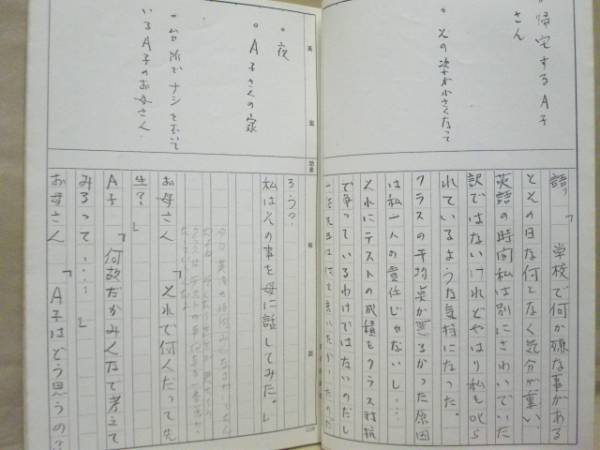 帰宅するA子
さん
・その姿が小さくなって
語り「学校で何か嫌な事がある
とその日な何となく気分が重い。
英語の時間私は別にさわいでいた
訳ではないけれどやはり私も叱ら
れているような気持になった。
クラスの平均点が悪るかった原因
は私一人の責任じゃないし…
それにテストの成績をクラス対抗
で争っているわけではないのだし
・夜
・A子さんの家
―台所でナシをむいて
いるA子のお母さん。
ろう?
私はその事を母に話してみた。」
お母さん「それで何んだって先
生?」
A子「何故だかみんなで考えて
みろって……」
お母さん「A子はどう思うの?